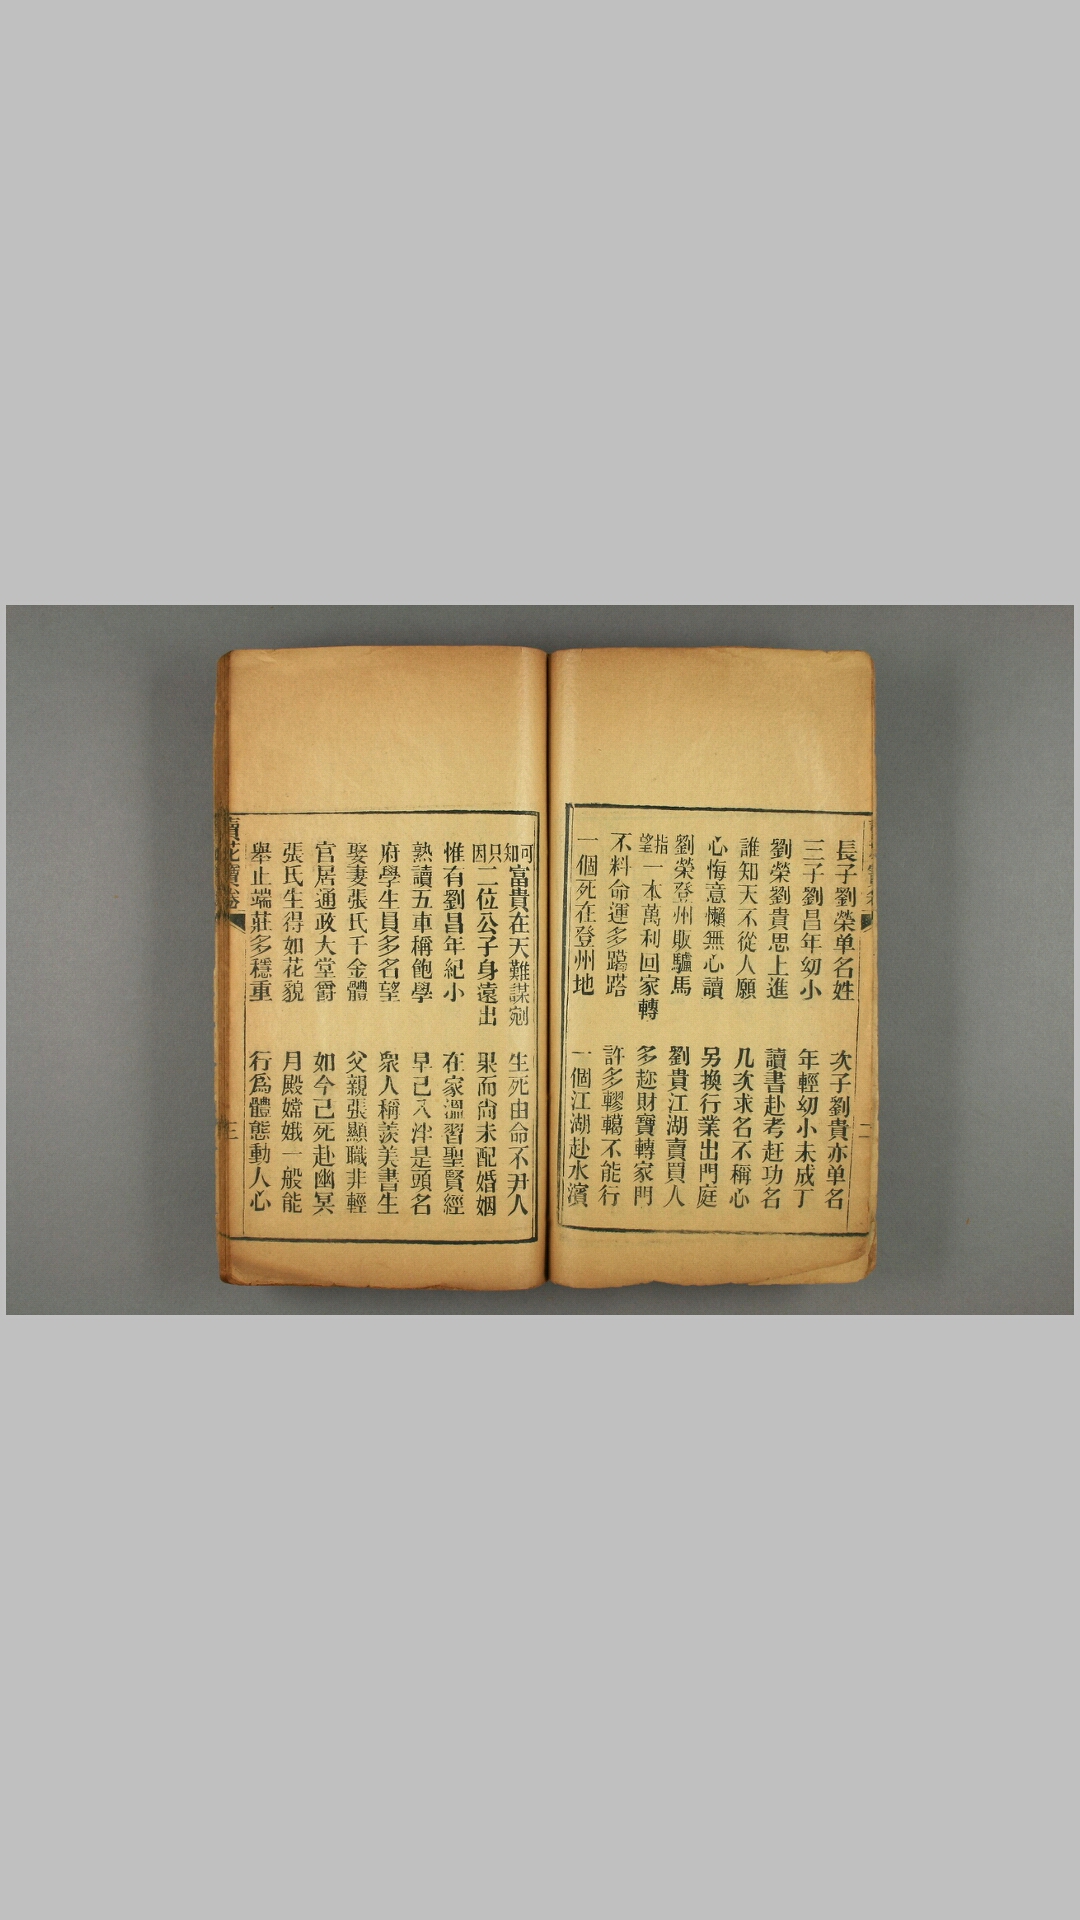 長子劉榮单名姓　次子劉貴亦单名
三子劉昌年幼小　年輕幼小未成丁
劉榮劉貴思上進　讀書赴考赶功名
誰知天不從人願　几次求名不稱心
心悔意懶無心讀　另換行業出門庭
劉榮登州販驢馬　劉貴江湖賣買人
指望一本萬利回家轉　多趂財寶轉家門
不料命運多蹋踏　許多轇轕不能行
一個死在登州地　一個江湖赴水濱
二
可知富貴在天難謀　生死由命不尹人
只因二位公子身遠出　果而尙未配婚姻
惟有劉昌年紀小　在家溫習聖賢經
熟讀五車稱飽學　早已入泮是頭名
府學生員多名望　衆人稱羨美書生
娶妻張氏千金體　父親張顯職非輕
官居通政大堂爵　如今已死赴幽冥
張氏生得如花貌　月殿嫦娥一般能
舉止端莊多穩重　行爲體態動人心
賣花寶卷　三